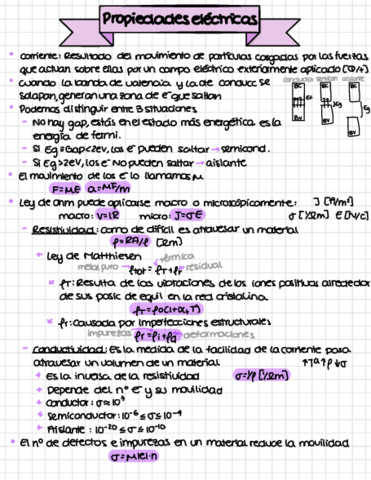 Propiedades eléctricas
* corriente: Resultado del movimiento de partículas cargadas por las fuerzas
que actúan sobre ellas por un campo eléctrico exteriormente aplicado
* Cuando la banda de valencia y la de conducc se
solapan, generan una zona de e⁻ que saltan
* Podemos distinguir entre 3 situaciones
- No hay gap, estás en el estado más energético es la
energía de fermi.
- Si Eg=Gap<2eV, los e⁻ pueden saltar → semicond.
- Si Eg>2eV, los e⁻ no pueden saltar → aislante
conductor aislante
BC BC BC
BV BV BV
Eg
* El movimiento de los e⁻ lo llamamos μ
F=μE
* Ley de ohm puede aplicarse macro o microscópicamente: J [A/m²]
macro: V=IR micro: J=σE
- Resistividad: como de difícil es atravesar un material
ρ=RA/l [Ωm]
* Ley de Matthiesen
térmica
metal puro ρtot = ρT+ρr residual
* ρT: Resulta de las vibraciones de los iones positivos alrededor
de sus posic de equil en la red cristalina
* ρr: Causada por imperfecciones estructurales
impurezas ρr=ρi+ρd deformaciones
- Conductividad: Es la medida de la facilidad de la corriente para
atravesar un volumen de un material ↑T↑ρ↓σ
* Es la inversa de la resistividad σ=1/ρ
* Depende del nº e⁻ y su movilidad
* conductor: σ≈10⁷
* semiconductor: 10⁻⁶≤σ≤10⁻⁴
* Aislante: 10⁻²⁰≤σ≤10⁻¹⁰
* El nº de defectos e impurezas en un material reduce la movilidad
σ=μ|e|·n